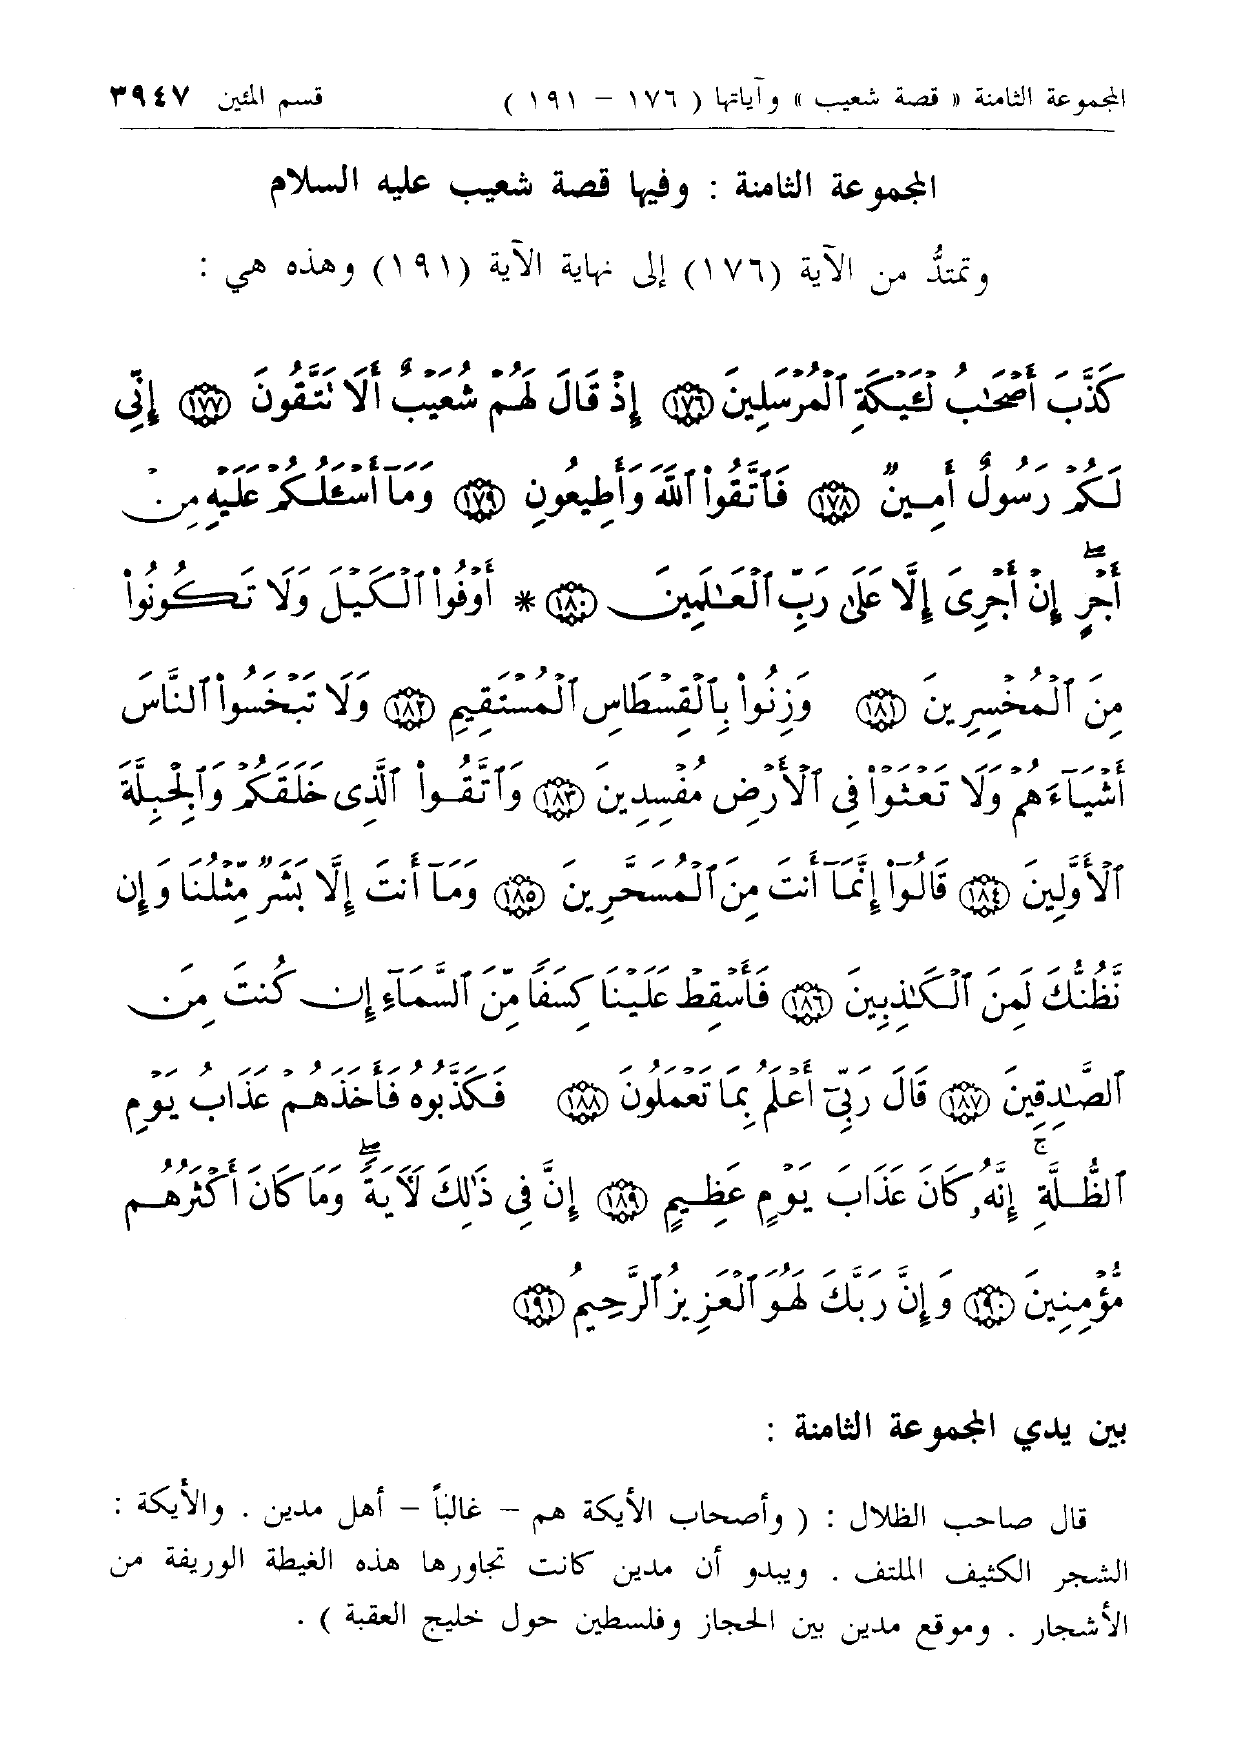 المجموعة الثامنة « قصة شعيب » وآياتها ( ١٧٦ – ١٩١ ) قسم المئين ٣٩٤٧
المجموعة الثامنة : وفيها قصة شعيب عليه السلام
وتمتدُّ من الآية (١٧٦) إلى نهاية الآية (١٩١) وهذه هي :
كَذَّبَ أَصْحَٰبُ لْـَٔيْكَةِ ٱلْمُرْسَلِينَ ﴿١٧٦﴾ إِذْ قَالَ لَهُمْ شُعَيْبٌ أَلَا تَتَّقُونَ ﴿١٧٧﴾ إِنِّي
لَكُمْ رَسُولٌ أَمِينٌ ﴿١٧٨﴾ فَٱتَّقُوا۟ ٱللَّهَ وَأَطِيعُونِ ﴿١٧٩﴾ وَمَآ أَسْـَٔلُكُمْ عَلَيْهِ مِنْ
أَجْرٍ ۖ إِنْ أَجْرِىَ إِلَّا عَلَىٰ رَبِّ ٱلْعَٰلَمِينَ ﴿١٨٠﴾ * أَوْفُوا۟ ٱلْكَيْلَ وَلَا تَكُونُوا۟
مِنَ ٱلْمُخْسِرِينَ ﴿١٨١﴾ وَزِنُوا۟ بِٱلْقِسْطَاسِ ٱلْمُسْتَقِيمِ ﴿١٨٢﴾ وَلَا تَبْخَسُوا۟ ٱلنَّاسَ
أَشْيَآءَهُمْ وَلَا تَعْثَوْا۟ فِى ٱلْأَرْضِ مُفْسِدِينَ ﴿١٨٣﴾ وَٱتَّقُوا۟ ٱلَّذِى خَلَقَكُمْ وَٱلْجِبِلَّةَ
ٱلْأَوَّلِينَ ﴿١٨٤﴾ قَالُوٓا۟ إِنَّمَآ أَنتَ مِنَ ٱلْمُسَحَّرِينَ ﴿١٨٥﴾ وَمَآ أَنتَ إِلَّا بَشَرٌ مِّثْلُنَا وَإِن
نَّظُنُّكَ لَمِنَ ٱلْكَٰذِبِينَ ﴿١٨٦﴾ فَأَسْقِطْ عَلَيْنَا كِسَفًا مِّنَ ٱلسَّمَآءِ إِن كُنتَ مِنَ
ٱلصَّٰدِقِينَ ﴿١٨٧﴾ قَالَ رَبِّىٓ أَعْلَمُ بِمَا تَعْمَلُونَ ﴿١٨٨﴾ فَكَذَّبُوهُ فَأَخَذَهُمْ عَذَابُ يَوْمِ
ٱلظُّلَّةِ ۚ إِنَّهُۥ كَانَ عَذَابَ يَوْمٍ عَظِيمٍ ﴿١٨٩﴾ إِنَّ فِى ذَٰلِكَ لَـَٔايَةً ۖ وَمَا كَانَ أَكْثَرُهُم
مُّؤْمِنِينَ ﴿١٩٠﴾ وَإِنَّ رَبَّكَ لَهُوَ ٱلْعَزِيزُ ٱلرَّحِيمُ ﴿١٩١﴾
بين يدي المجموعة الثامنة :
قال صاحب الظلال : ( وأصحاب الأيكة هم – غالباً – أهل مدين . والأيكة :
الشجر الكثيف الملتف . ويبدو أن مدين كانت تجاورها هذه الغيطة الوريفة من
الأشجار . وموقع مدين بين الحجاز وفلسطين حول خليج العقبة ) .